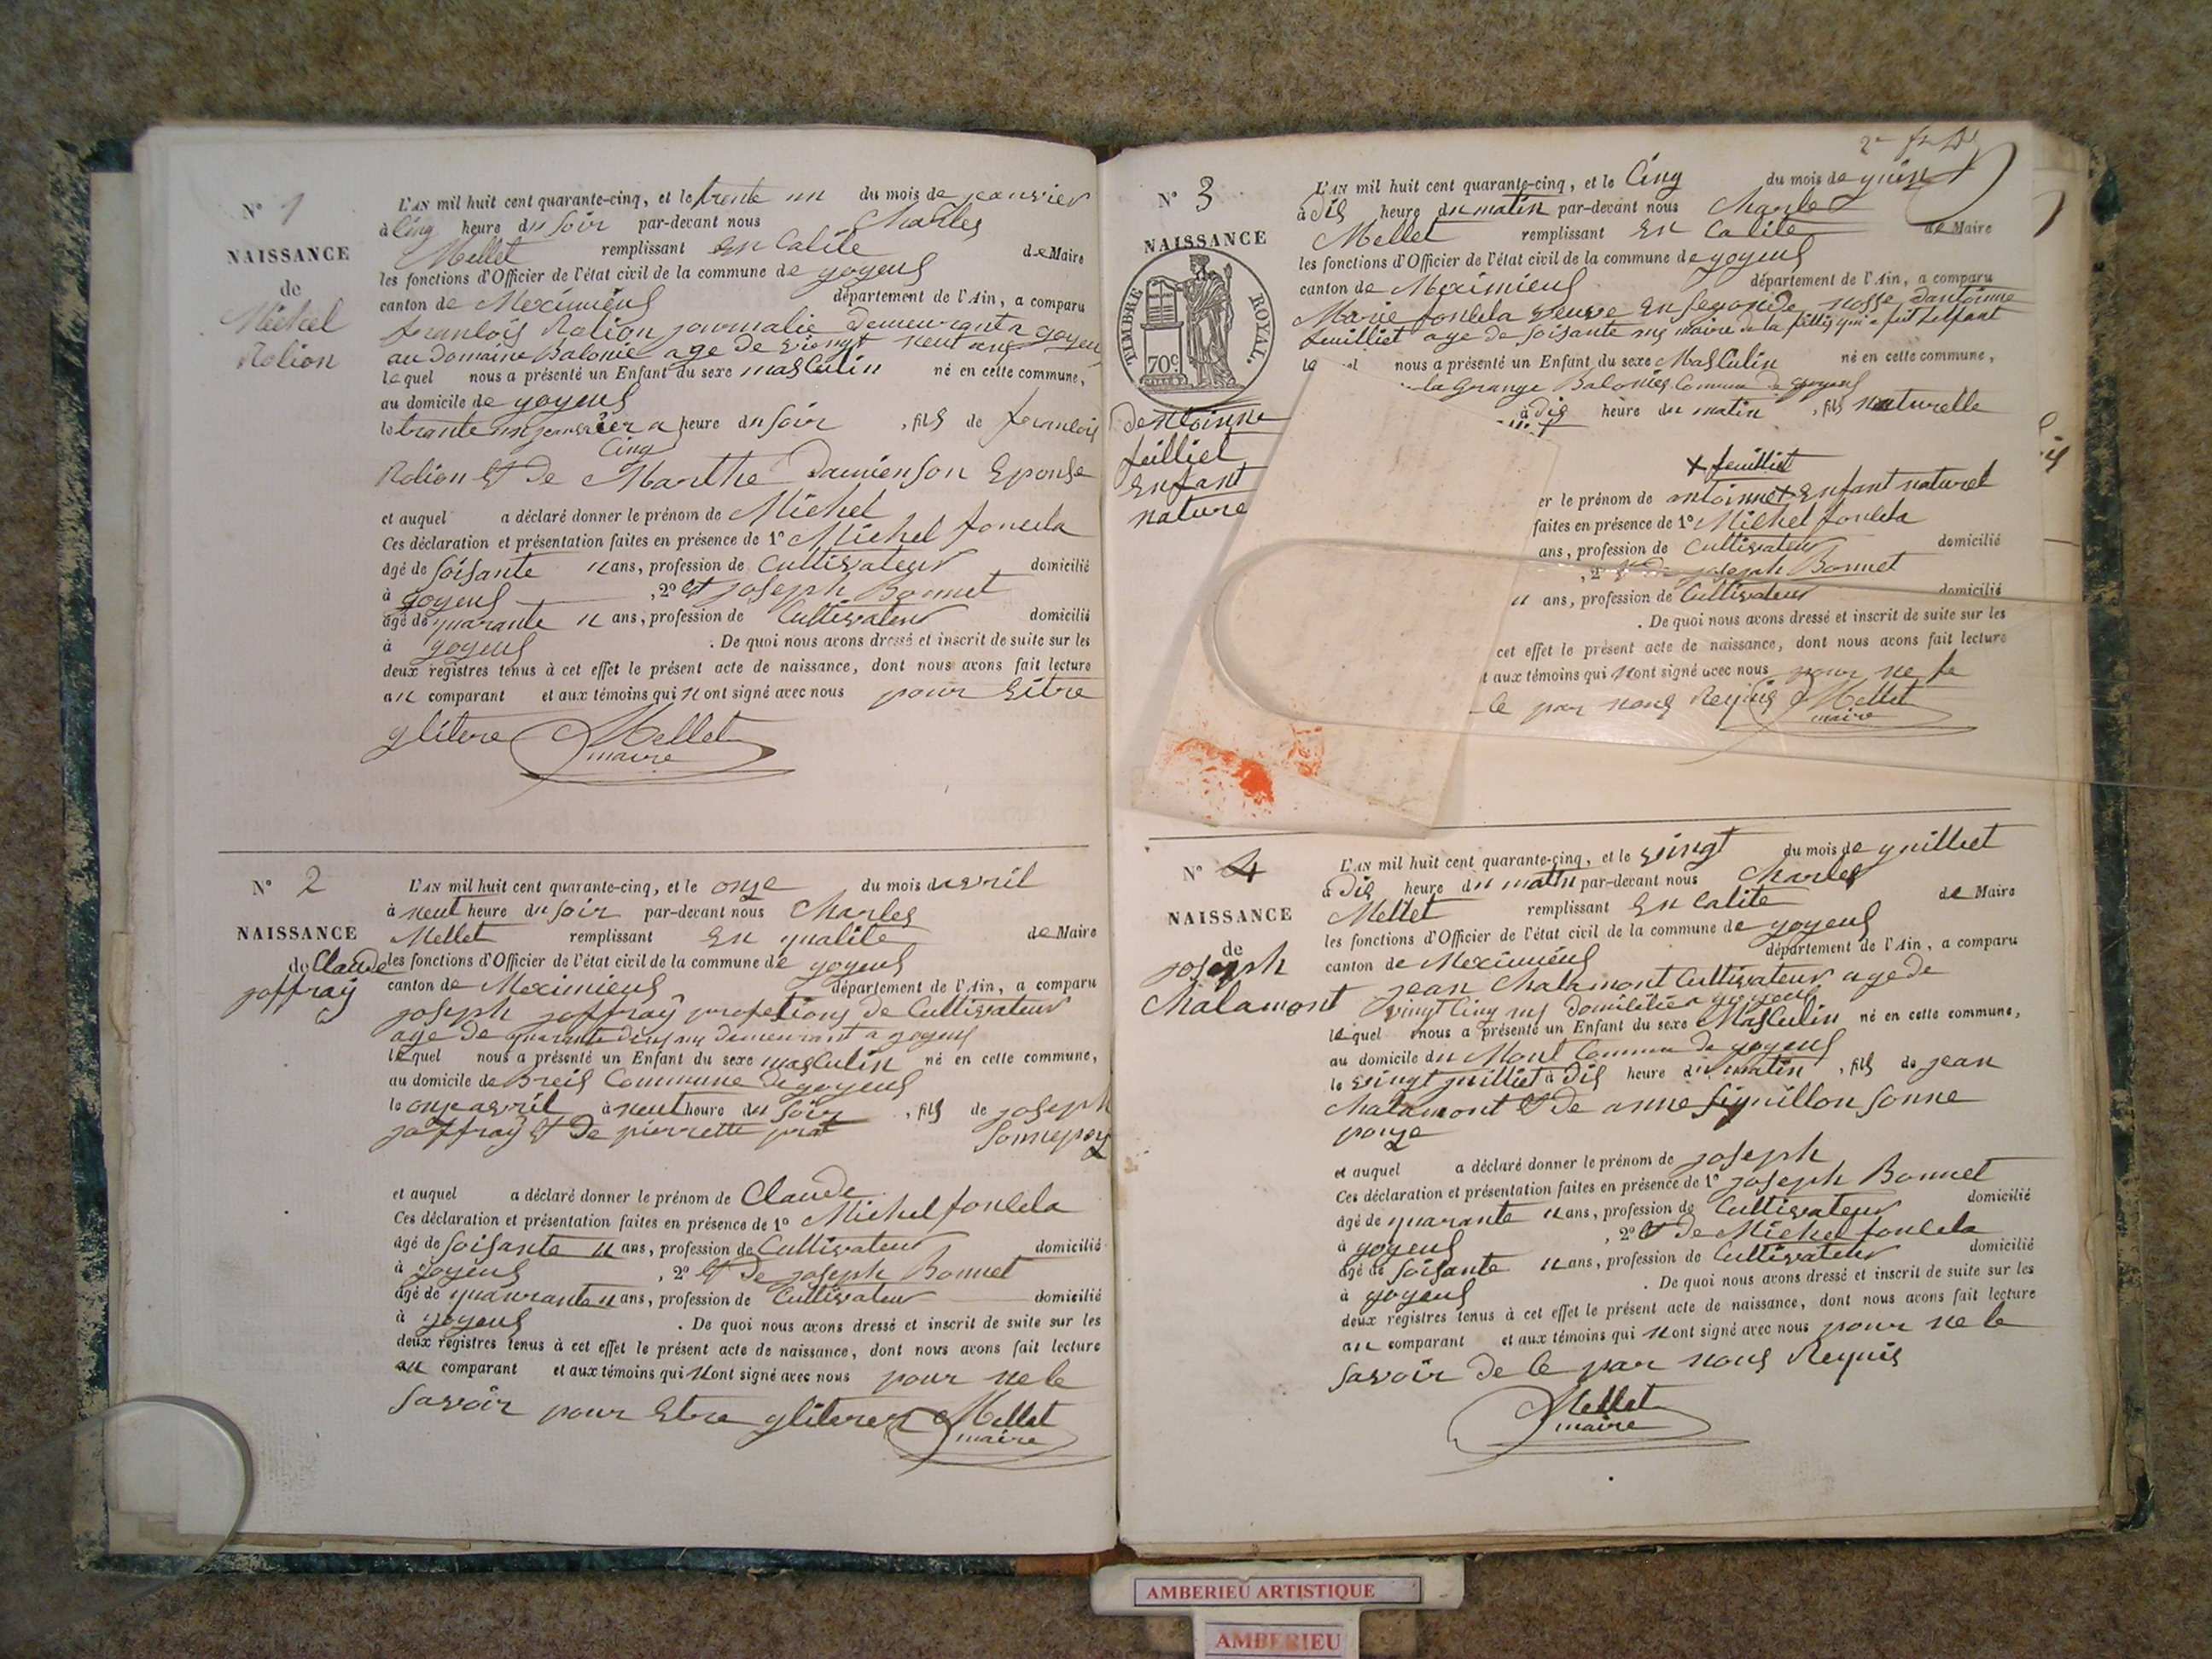 N° 1
NAISSANCE
de
Michel
Rolion
L'AN mil huit cent quarante-cinq, et le trente un du mois de jeanvier
à Cinq heure du soir par-devant nous Charles
Mellet remplissant en Calite de Maire
les fonctions d'Officier de l'état civil de la commune de joyeus
canton de Meximieus département de l'Ain, a comparu
francois Rolion journalie demeurant a joyeu
au domaine Balonie age de viengt neuf ans
lequel nous a présenté un Enfant du sexe masCulin né en cette commune,
au domicile de joyeus
le trante un jeanvier a heure du soir, fils de francois
Cinq
Rolion et de Marthe Damienson Epouse
et auquel a déclaré donner le prénom de Michel
Ces déclaration et présentation faites en présence de 1° Michel foulela
âgé de soisante ans, profession de Cultivateur domicilié
à joyeus, 2° et joseph Bonnet
âgé de quarante ans, profession de Cultivateur domicilié
à joyeus. De quoi nous avons dressé et inscrit de suite sur les
deux registres tenus à cet effet le présent acte de naissance, dont nous avons fait lecture
au comparant et aux témoins qui n'ont signé avec nous pour Eitre
glitere Mellet
maire
N° 2
NAISSANCE
de Claude
joffray
L'AN mil huit cent quarante-cinq, et le onze du mois d'avril
à neuf heure du soir par-devant nous Charles
Mellet remplissant En qualite de Maire
les fonctions d'Officier de l'état civil de la commune de joyeus
canton de Meximieus département de l'Ain, a comparu
joseph joffray profetions de Cultivateur
age de quarante deus ans demeurant a joyeus
lequel nous a présenté un Enfant du sexe masCulin né en cette commune,
au domicile de Breis Commune de joyeus
le onze avril à neuf heure du soir, fils de joseph
joffray et de pierrette prat sonnepouz
et auquel a déclaré donner le prénom de Claude
Ces déclaration et présentation faites en présence de 1° Michel foulela
âgé de soisante ans, profession de Cultivateur domicilié
à joyeus, 2° et de joseph Bonnet
âgé de quaurante ans, profession de Cultivateur domicilié
à joyeus. De quoi nous avons dressé et inscrit de suite sur les
deux registres tenus à cet effet le présent acte de naissance, dont nous avons fait lecture
au comparant et aux témoins qui n'ont signé avec nous pour ne le
savoir pour Etre gliterer Mellet
maire
N° 3
NAISSANCE
TIMBRE ROYAL.
70c
dentoinne
feilliet
Enfant
nature
L'AN mil huit cent quarante-cinq, et le Cinq du mois de guin
à dis heure du matin par-devant nous Charle
Mellet remplissant En Calite de Maire
les fonctions d'Officier de l'état civil de la commune de joyeus
canton de Meximieus département de l'Ain, a comparu
Marie foulela veuve En segonde nosse dantoinne
feuilliet age de soisante ans maire de la fillis qui a fait Lenfant
nous a présenté un Enfant du sexe MasCulin né en cette commune,
la Grange Balonies Commune de joyeus
à dis heure du matin, fils naturelle
+ feuilliet
er le prénom de antoinne + Enfant naturel
faites en présence de 1° Michel foulela
ans, profession de Cultivateur domicilié
, 2° et de joseph Bonnet
ans, profession de Cultivateur domicilié
. De quoi nous avons dressé et inscrit de suite sur les
cet effet le présent acte de naissance, dont nous avons fait lecture
t aux témoins qui n'ont signé avec nous pour ne le
le par nous Requis Mellet
maire
N° 4
NAISSANCE
de
joseph
Chalamont
L'AN mil huit cent quarante-cinq, et le vingt du mois de guilliet
à Dis heure du matin par-devant nous Charles
Mellet remplissant En Calite de Maire
les fonctions d'Officier de l'état civil de la commune de joyeus
canton de Meximieus département de l'Ain, a comparu
jean Chalamont Cultivateur age de
vingt Cinq ans domicilie a joyeus
lequel nous a présenté un Enfant du sexe MasCulin né en cette commune,
au domicile du Mont Commune de joyeus
le vingt juilliet à Dis heure du matin, fils de jean
Chalamont et de anne figuillon sonne
pouze
et auquel a déclaré donner le prénom de joseph
Ces déclaration et présentation faites en présence de 1° joseph Bonnet
âgé de quarante ans, profession de Cultivateur domicilié
à joyeus, 2° et de Michel foulela
âgé de soisante ans, profession de Cultivateur domicilié
à joyeus. De quoi nous avons dressé et inscrit de suite sur les
deux registres tenus à cet effet le présent acte de naissance, dont nous avons fait lecture
au comparant et aux témoins qui n'ont signé avec nous pour ne le
savoir de le par nous Requis
Mellet
maire
AMBERIEU ARTISTIQUE
AMBERIEU